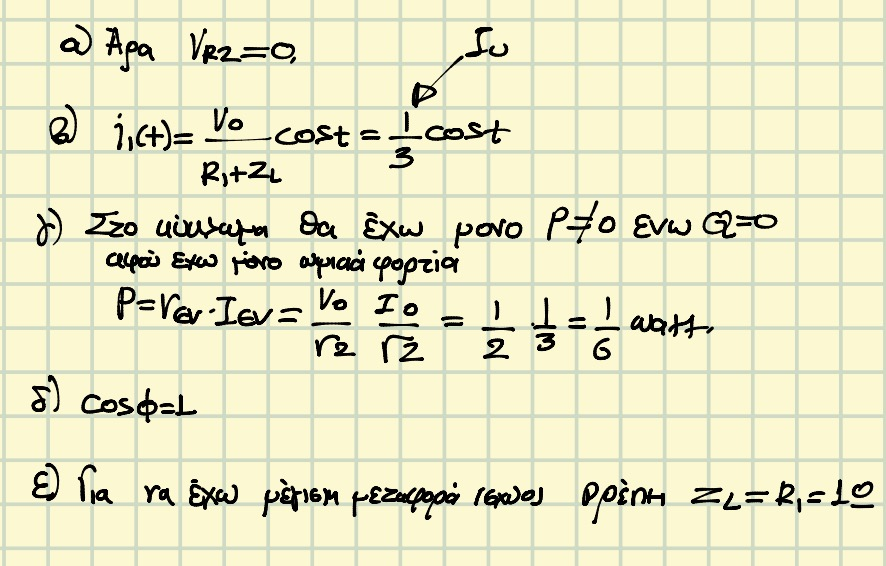 α) Άρα V_{R2}=0,
I_0
β) i_1(t)= \frac{V_0}{R_1+Z_L} cost = \frac{1}{3} cost
γ) Στο κύκλωμα θα έχω μονο P≠0 ενω Q=0
αφού έχω μόνο ωμικά φορτία
P=V_{εν}·I_{εν}= \frac{V_0}{\sqrt{2}} \frac{I_0}{\sqrt{2}} = \frac{1}{2} · \frac{1}{3} = \frac{1}{6} watt,
δ) cosφ=1
ε) Για να έχω μέγιστη μεταφορά ισχύος πρέπη Z_L=R_1=1Ω